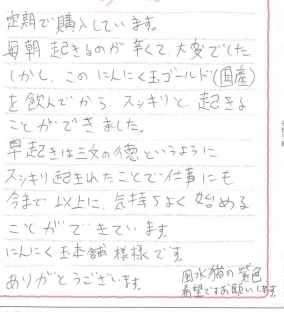 定期で購入しています。
毎朝起きるのが辛くて、大変でした
しかし、このにんにく玉ゴールド(国産)
を飲んでから、スッキリと、起きる
ことができました。
早起きは三文の徳というように
スッキリ起きれたことで仕事にも
今まで以上に、気持ちよく始める
ことができています。
にんにく玉本舗様様です。
ありがとうございます。
風水猫の紫色
希望ですお願いします